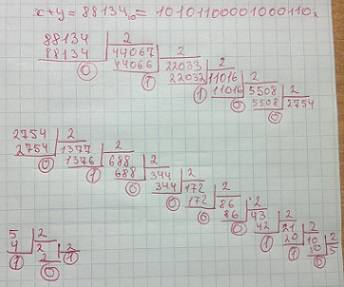 x+y = 88134₁₀ = 10101100001000110₂
88134 2
88134 44067 2
0 44066 22033 2
1 22032 11016 2
1 11016 5508 2
0 5508 2754
0
2754 2
2754 1377 2
0 1376 688 2
1 688 344 2
0 344 172 2
0 172 86 2
0 86 43 2
0 42 21 2
1 20 10 2
1 10 5
0
5 2
4 2 2
1 2 1
0